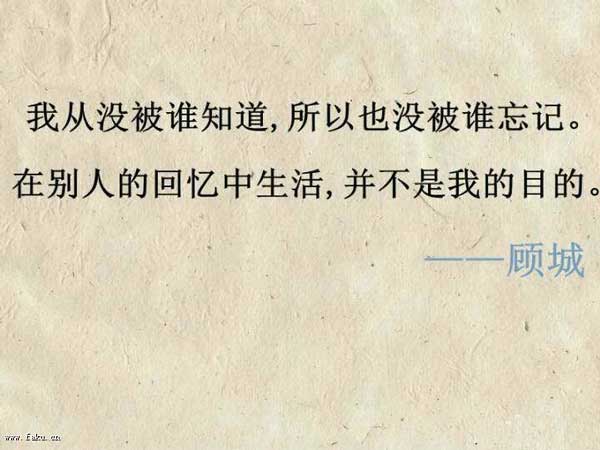 我从没被谁知道,所以也没被谁忘记。
在别人的回忆中生活,并不是我的目的。
——顾城
www.faku.cn